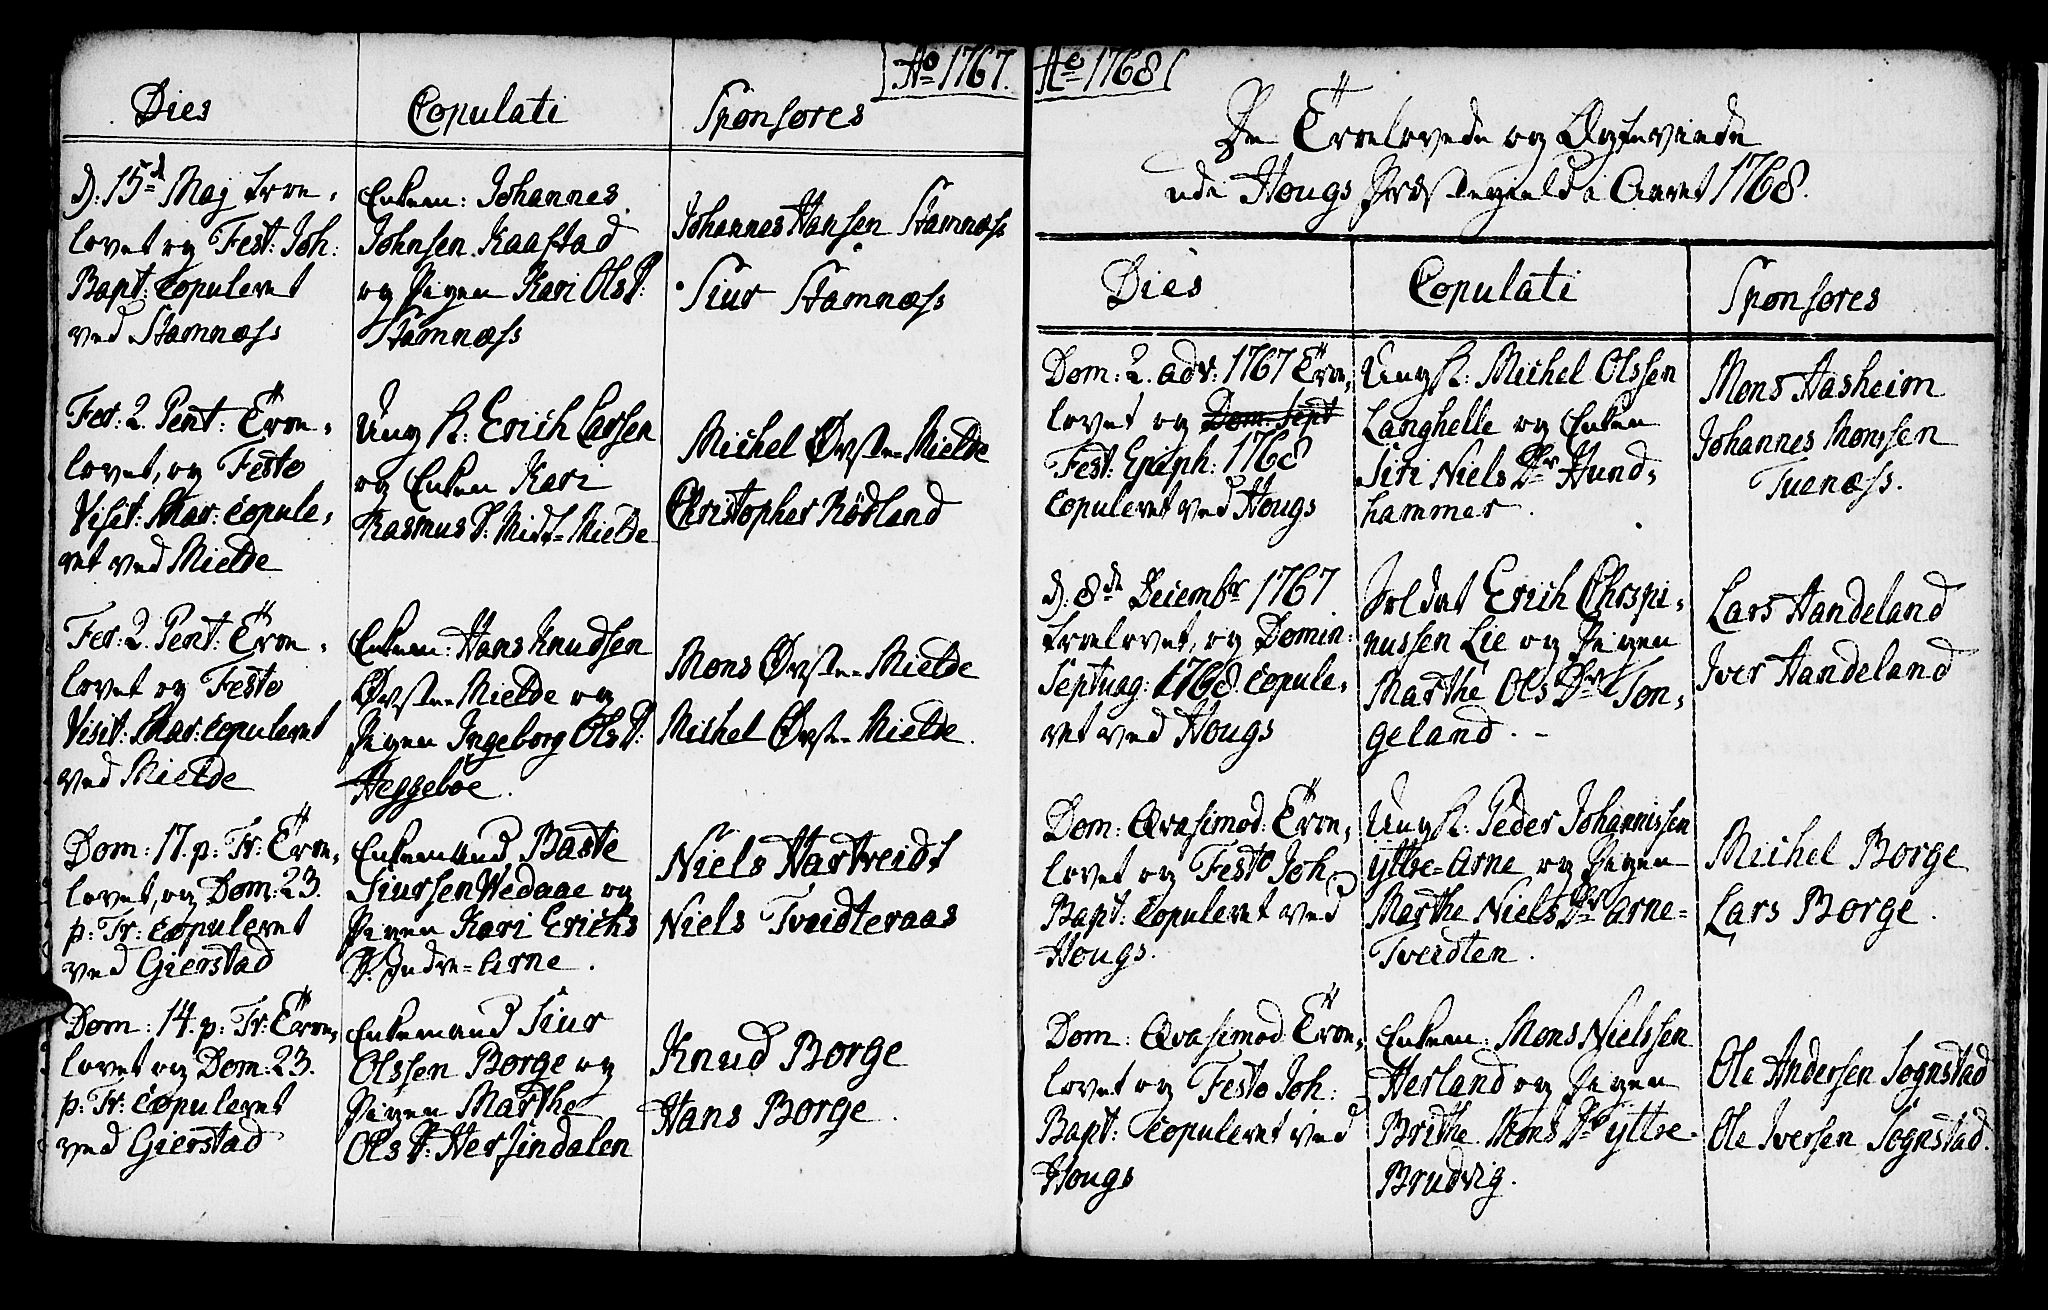 Ao 1767.
Dies
Copulati
Sponsores
d: 15de Maj troe-
lovet og Fest: Joh:
Bapt: Copuleret
ved Stamnæss
Enkem: Johannes
Johnsen Kaastad
og Pigen Kari Ols D:
Stamnæss
Johannes Hansen Stamnæss
Siur Stamnæss
Fer: 2. Pent: Troe-
lovet, og Festo
Visit: Mar: Copule-
ret ved Mielde
Ung K: Erich Larsen
og Enken Kari
Rasmus D: Midt-Mielde
Michel Øvste-Mielde
Christopher Rödland
Fer: 2. Pent: Troe-
lovet og Festo
Visit: Mar: Copuleret
ved Mielde
Enkem: Hans Knudsen
Øvste-Mielde og
Pigen Ingeborg Ols D:
Heggeboe.
Mons Øvste-Mielde
Michel Øvste-Mielde.
Dom: 17. p: Tr: Troe-
lovet, og Dom: 23.
p: Tr: Copuleret
ved Gierstad
Enkemand Baste
Siursen Wedaae og
Pigen Kari Erichs
D: Indre-Arne.
Niels Hartveidt
Niels Tveidteraas
Dom: 14. p: Tr: Troe-
lovet og Dom: 23.
p: Tr: Copuleret
ved Gierstad
Enkemand Siur
Olssen Borge og
Pigen Marthe
Ols D: Hersindalen
Knud Borge
Hans Borge.
Ao 1768
De Troelovede og Ægteviede
udi Hougs Præstegield i Aaret 1768.
Dies
Copulati
Sponsores
Dom: 2. adv: 1767 Troe-
lovet og Dom: Sept
Fest: Epiph: 1768
Copuleret ved Hougs
Ung K: Michel Olssen
Langhelle og Enken
Siri Niels Dr Hund-
hammer.
Mons Hasheim
Johannes Monssen
Tuenæss.
d: 8de Decembr 1767
troelovet, og Domin:
Septuag: 1768. Copule-
ret ved Hougs
Soldat Erich Chrspi-
nussen Lie og Pigen
Marthe Ols Dr Ton-
geland. -
Lars Handeland
Iver Handeland
Dom: Qvasimod: Troe-
lovet og Festo Joh
Bapt: Copuleret ved
Hougs.
Ung K: Peder Johannissen
yttre-Arne og Pigen
Marthe Niels Dr Arne-
Tveidten.
Michel Borge
Lars Borge.
Dom: Qvasimod Troe-
lovet og Festo Joh:
Bapt: Copuleret ved
Hougs
Enkem: Mons Nielssen
Herland og Pigen
Brithe Mons Dr yttre-
Brudvig.
Ole Andersen Sognstad
Ole Iversen Sognstad.